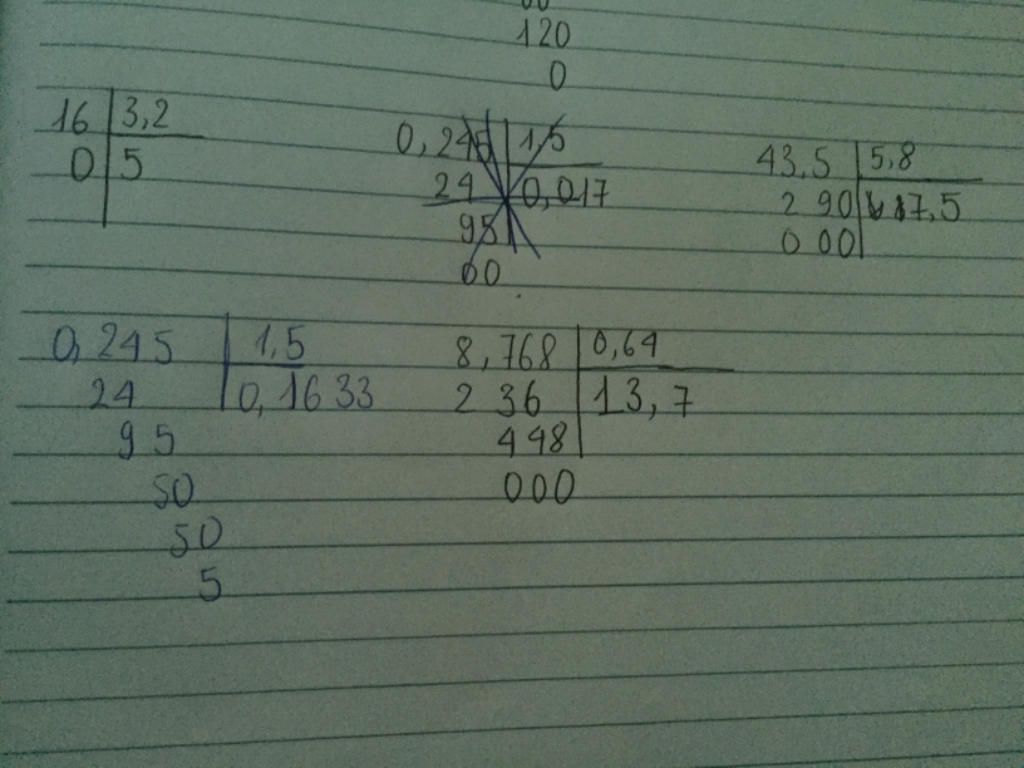 00
120
0
16 3,2
0 5
0,245 1,5
24 0,017
95
00
43,5 5,8
2 90 7,5
0 00
0,245 1,5
24 0,1633
95
50
50
5
8,768 0,64
2 36 13,7
448
000